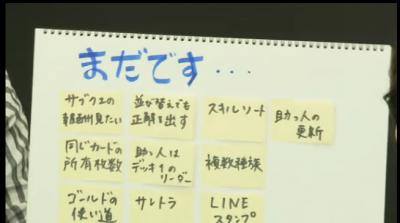 まだです・・・
サブクエの
報酬が見たい
並び替えでも
正解を出す
スキルソート
助っ人の
更新
同じカードの
所有枚数
助っ人は
デッキ1の
リーダー
複数種族
ゴールドの
使い道
サントラ
LINE
スタンプ